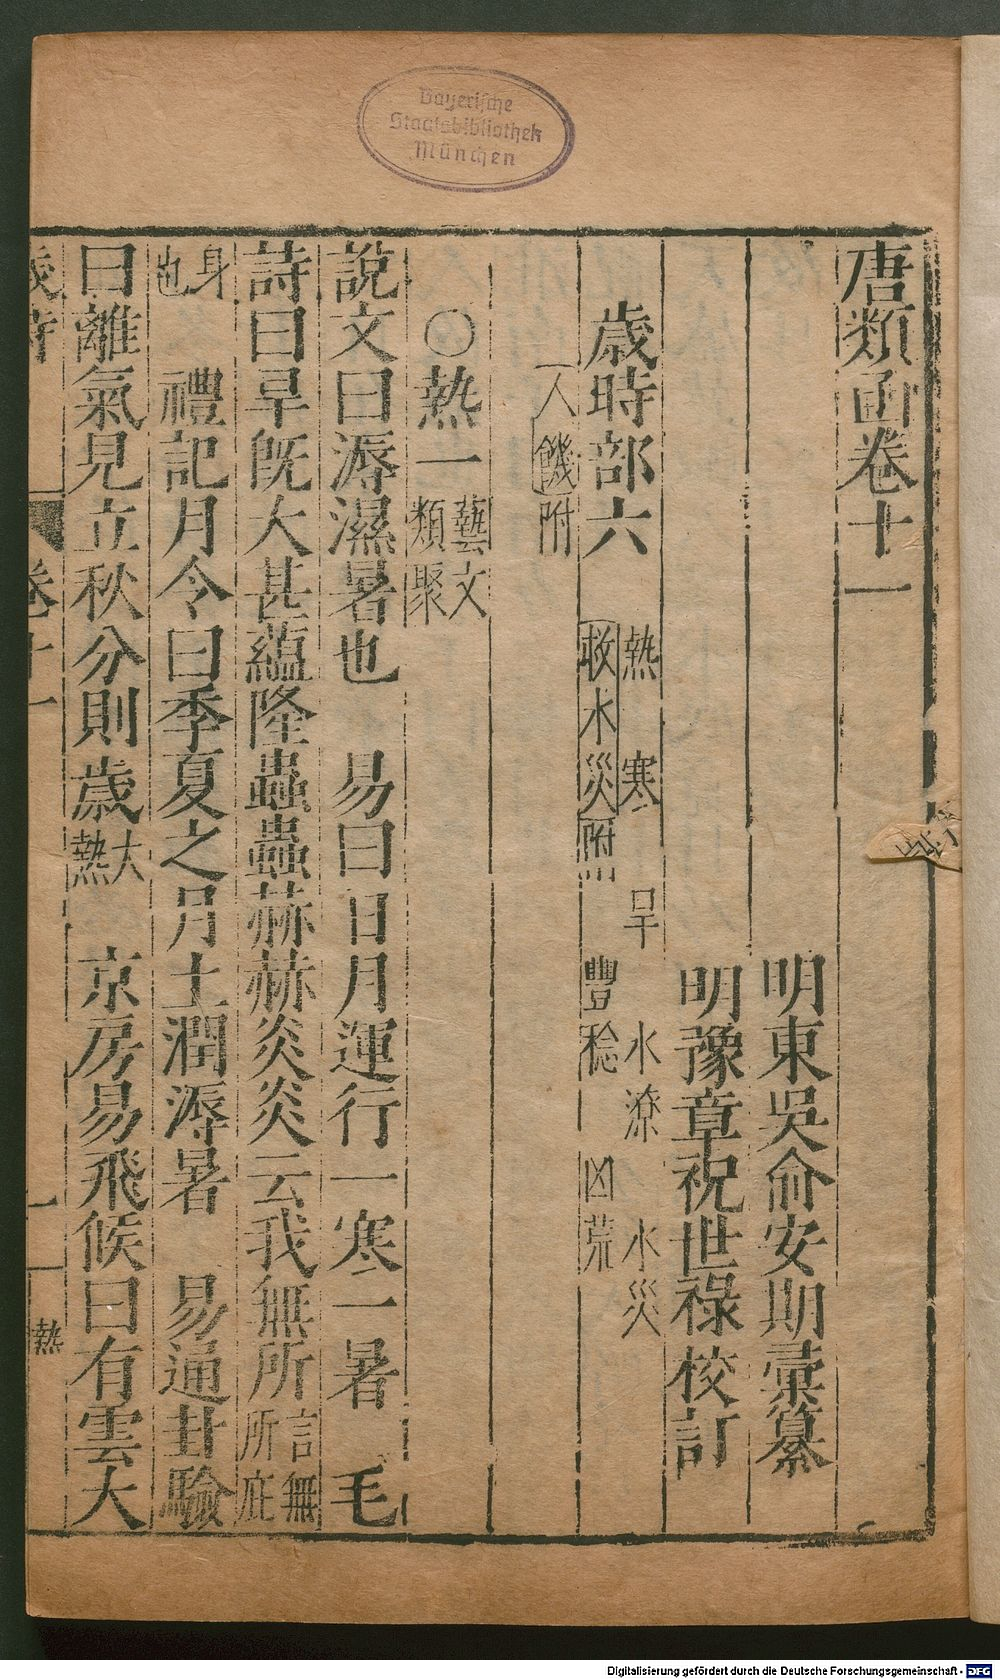 Bayerische
Staatsbibliothek
München
唐類函卷十一
明東吳俞安期彙纂
明豫章祝世祿校訂
歲時部六
熱 寒 旱 水潦 水災
救水災附 豐稔 凶荒
人饑附
○熱一 藝文
類聚
說文曰溽濕暑也 易曰日月運行一寒一暑 毛
詩曰旱旣大甚蘊隆蟲蟲赫赫炎炎云我無所 言無
所庇
身
也 禮記月令曰季夏之月土潤溽暑 易通卦驗
曰離氣見立秋分則歲 大
熱 京房易飛候曰有雲大
歲時 卷十一 一 熱
Digitalisierung gefördert durch die Deutsche Forschungsgemeinschaft - DFG